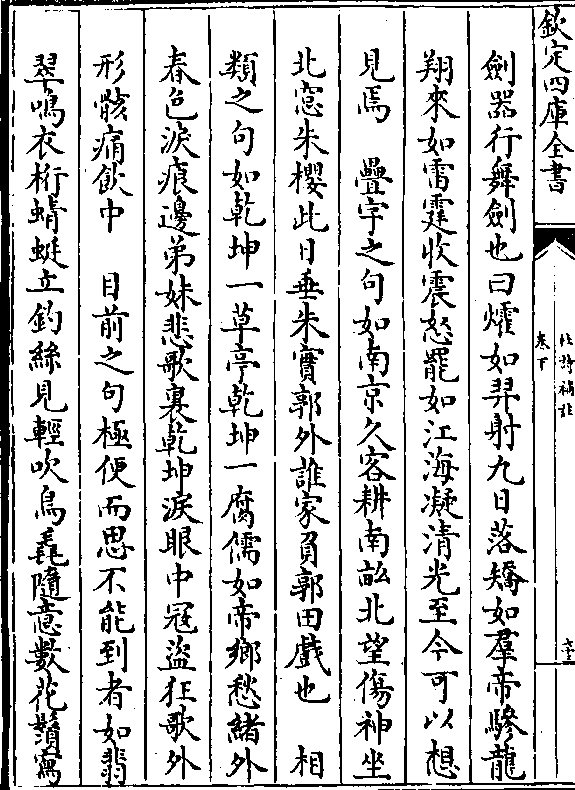 欽定四庫全書
杜詩補註
卷下
六十三
劍器行舞劍也曰㸌如羿射九日落矯如羣帝驂龍
翔來如雷霆收震怒罷如江海凝清光至今可以想
見焉　疊字之句如南京久客耕南畝北望傷神坐
北窓朱櫻此日垂朱實郭外誰家負郭田戲也　相
類之句如乾坤一草亭乾坤一腐儒如帝鄉愁緒外
春色淚痕邊弟妹悲歌裏乾坤淚眼中冦盜狂歌外
形骸痛飲中　目前之句極便而思不能到者如翡
翠鳴衣桁蜻蜓立釣絲見輕吹鳥毳隨意數花鬚寫